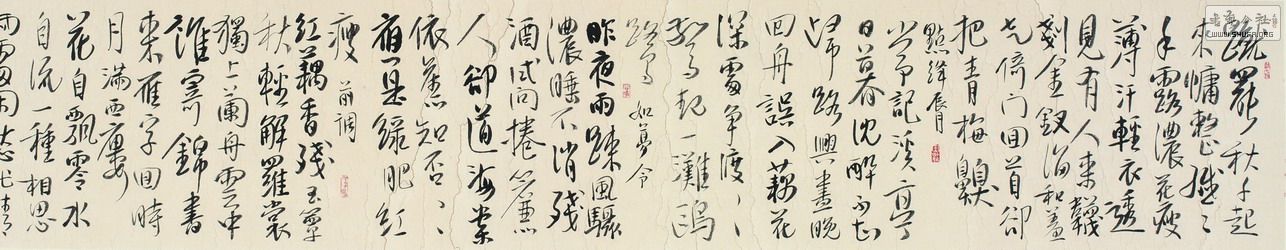 蹴罷秋千起
來慵整纖〻
手露濃花瘦
薄汗輕衣透
見有人來襪
剗金釵溜和羞
走倚門回首卻
把青梅嗅
點絳唇
常記溪亭
日暮沈醉不知
歸路興盡晚
回舟誤入藕花
深處爭渡〻
驚起一灘鷗
鷺 如夢令
昨夜雨踈風驟
濃睡不消殘
酒試問捲簾
人卻道海棠
依舊知否〻
應是綠肥紅
瘦 前調
紅藕香殘玉簟
秋輕解羅裳
獨上蘭舟雲中
誰寄錦書
來雁字回時
月滿西樓
花自飄零水
自流一種相思